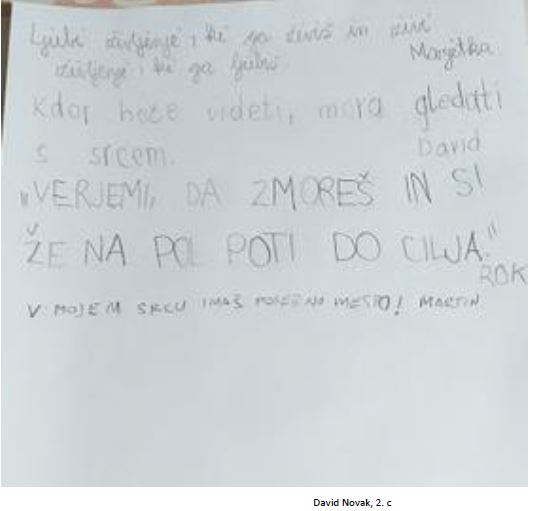 Ljubi življenje, ki ga živiš in živi
Marjetka
življenje, ki ga ljubiš.
Kdor hoče videti, mora gledati
s srcem.
David
"VERJEMI, DA ZMOREŠ IN SI
ŽE NA POL POTI DO CILJA."
ROK
V MOJEM SRCU IMAŠ POSEBNO MESTO! MARTIN
David Novak, 2. c